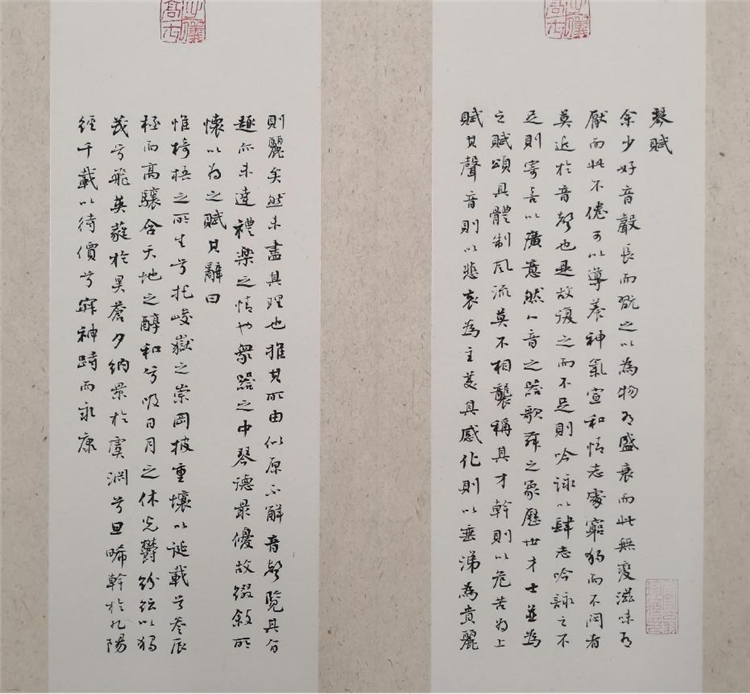 琴賦
余少好音聲長而翫之以為物有盛衰而此無變滋味有
厭而此不倦可以導養神氣宣和情志處窮獨而不悶者
莫近於音聲也是故復之而不足則吟詠以肆志吟詠之不
足則寄言以廣意然八音之器歌舞之象歷世才士並為
之賦頌其體制風流莫不相襲稱其才幹則以危苦為上
賦其聲音則以悲哀為主美其感化則以垂涕為貴麗
則麗矣然未盡其理也推其所由似原不解音聲覽其旨
趣亦未達禮樂之情也眾器之中琴德最優故綴敘所
懷以為之賦其辭曰
惟椅梧之所生兮托峻嶽之崇岡披重壤以誕載兮參辰
極而高驤含天地之醇和兮吸日月之休光鬱紛紜以獨
茂兮飛英蕤於昊蒼夕納景於虞淵兮旦晞幹於九陽
經千載以待價兮寂神跱而永康